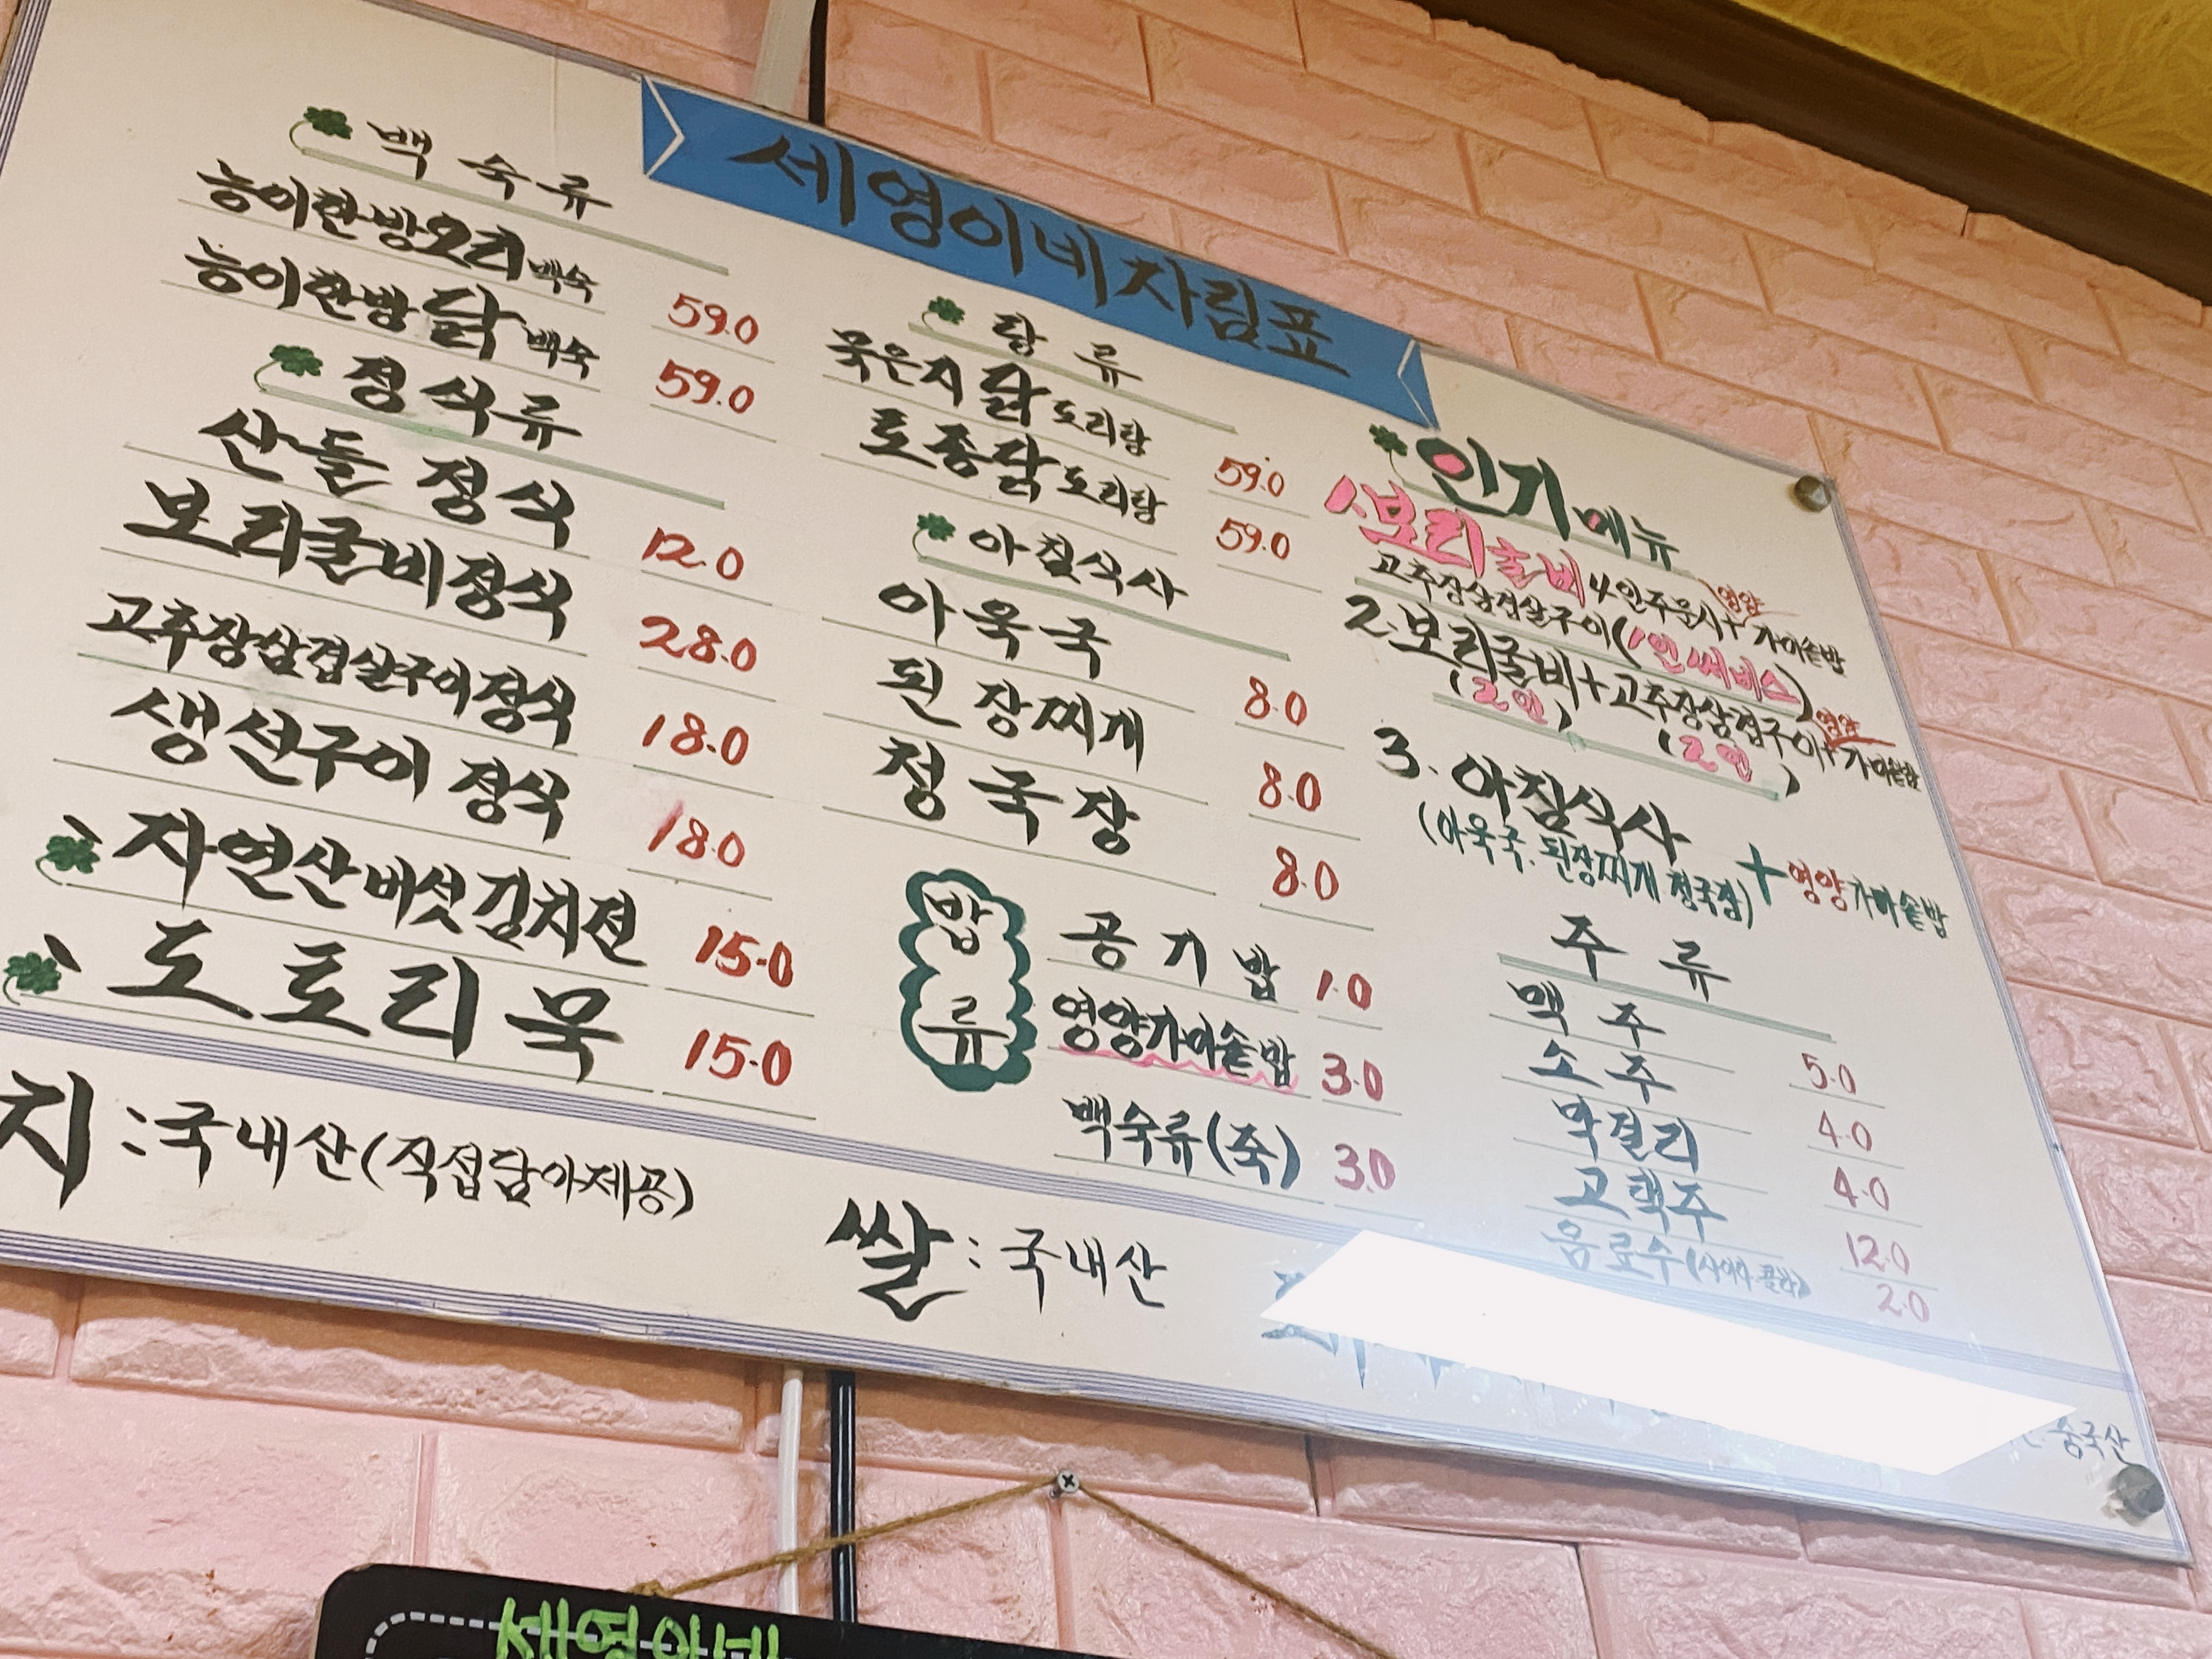 세영이네차림표
백숙류
능이한방오리백숙 59.0
능이한방닭백숙 59.0
정식류
산들 정식 12.0
보리굴비정식 28.0
고추장삼겹살구이정식 18.0
생선구이 정식 18.0
자연산버섯김치전 15.0
도토리묵 15.0
탕류
묵은지닭도리탕 59.0
토종닭도리탕 59.0
아침식사
아욱국 8.0
된장찌개 8.0
청국장 8.0
밥류
공기밥 1.0
영양가마솥밥 3.0
백숙류(죽) 3.0
인기메뉴
1.보리굴비4인주문시+영양가마솥밥
고추장삼겹살구이(1인써비스)
2.보리굴비+고추장삼겹구이+영양가마솥밥
(2인) (2인)
3.아침식사
(아욱국.된장찌개 청국장)+영양가마솥밥
주류
맥주 5.0
소주 4.0
막걸리 4.0
고맥주 12.0
음료수(사이다 콜라) 2.0
치:국내산(직접담아제공)
쌀:국내산
중국산